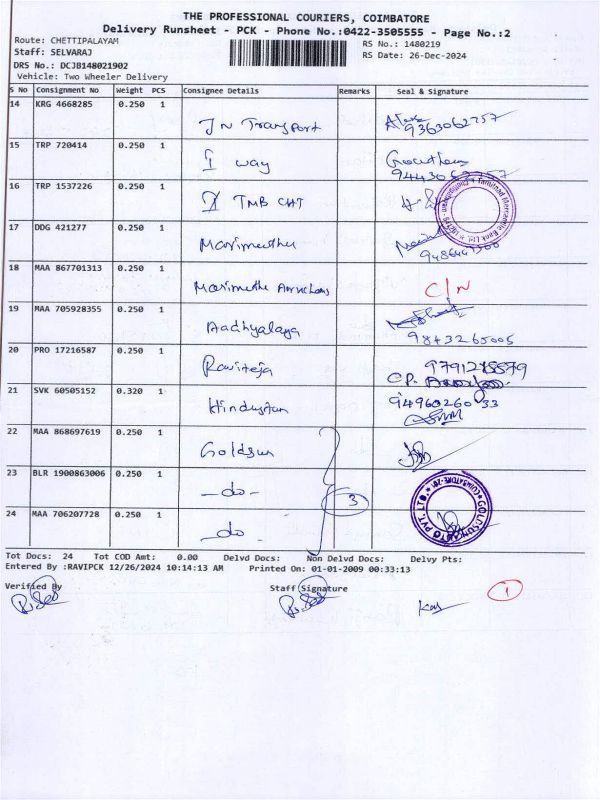 THE PROFESSIONAL COURIERS, COIMBATORE
Delivery Runsheet - PCK - Phone No.:0422-3505555 - Page No.:2
Route: CHETTIPALAYAM
RS No.: 1480219
Staff: SELVARAJ
RS Date: 26-Dec-2024
DRS No.: DCJB148021902
Vehicle: Two Wheeler Delivery
S No Consignment No Weight PCS Consignee Details Remarks Seal & Signature
14 KRG 4668285 0.250 1 JN Transport
15 TRP 720414 0.250 1 I way
16 TRP 1537226 0.250 1 TMB CHT
17 DDG 421277 0.250 1 Marimuthu
18 MAA 867701313 0.250 1 Marimuthu C/N
19 MAA 705928355 0.250 1 Aadhyalaya 9843265005
20 PRO 17216587 0.250 1 Raviteja
21 SVK 60505152 0.320 1 Hindustan
22 MAA 868697619 0.250 1 Goldsun
23 BLR 1900863006 0.250 1 -do- 3
24 MAA 706207728 0.250 1 -do-
Tot Docs: 24 Tot COD Amt: 0.00 Delvd Docs: Non Delvd Docs: Delvy Pts:
Entered By :RAVIPCK 12/26/2024 10:14:13 AM Printed On: 01-01-2009 00:33:13
Verified By Staff Signature
1